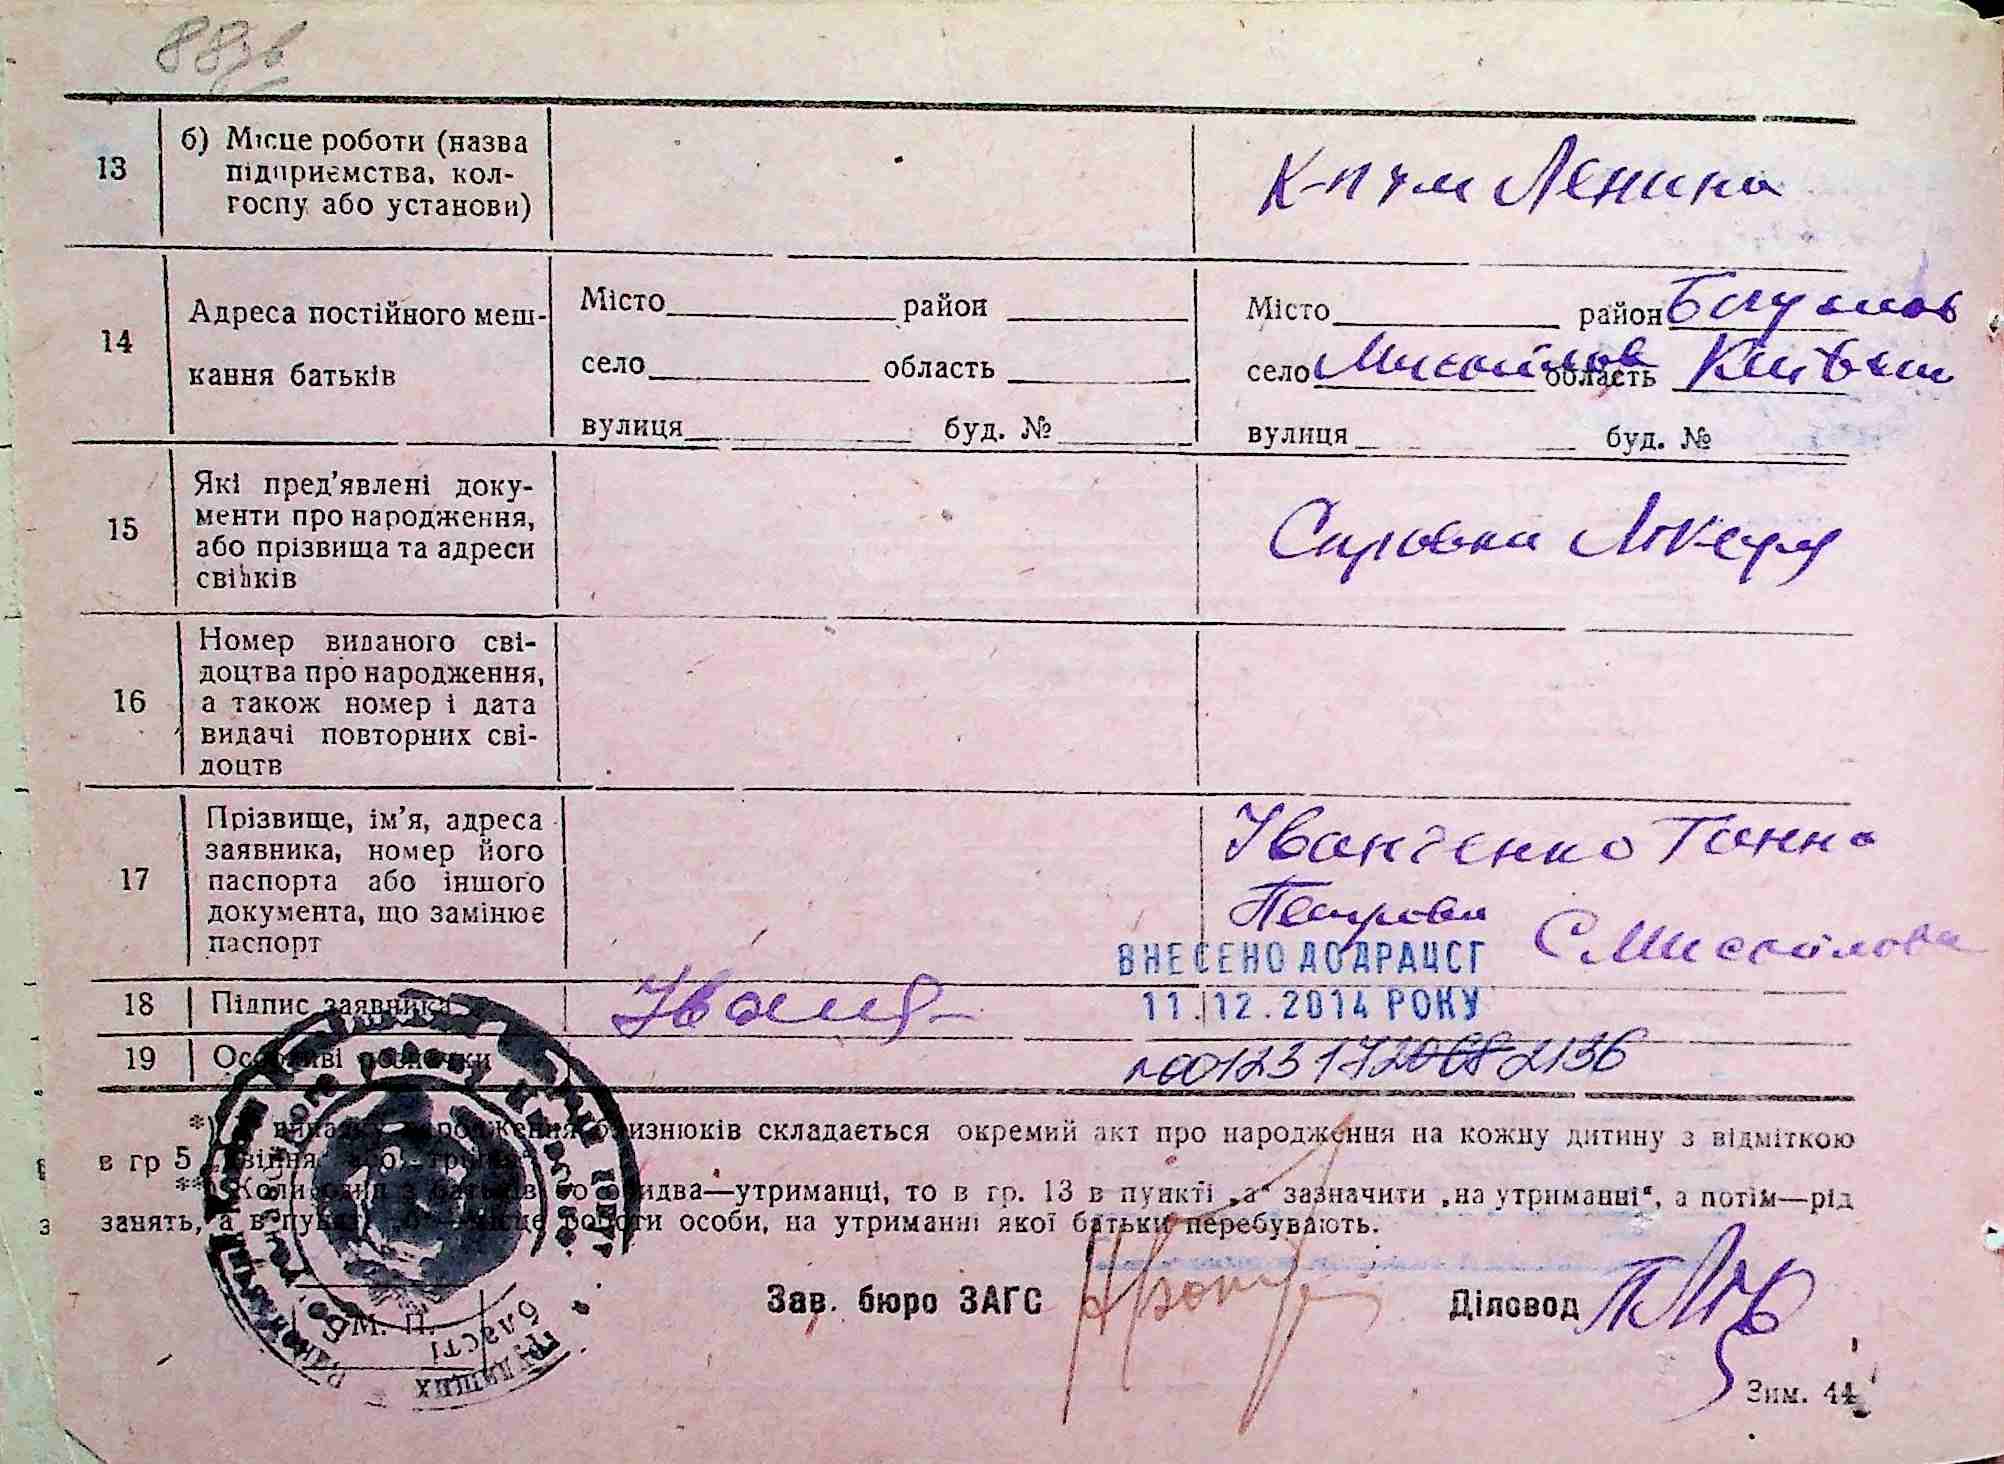 88зв
13
б) Місце роботи (назва
підприємства, кол-
госпу або установи)
К-п им Ленина
14
Адреса постійного меш-
кання батьків
Місто район
село область
вулиця буд. №
Місто район Богуслав
село область Київськ
вулиця буд. №
15
Які пред'явлені доку-
менти про народження,
або прізвища та адреси
свідків
Справка
16
Номер виданого сві-
доцтва про народження,
а також номер і дата
видачі повторних сві-
доцтв
17
Прізвище, ім'я, адреса
заявника, номер його
паспорта або іншого
документа, що замінює
паспорт
Іванченко Ганна
Петровн
С
ВНЕСЕНО ДО ДРАЦСГ
11.12.2014 РОКУ
18 Підпис заявника
19 Особливі позначки
№00123172068 2136
*) У випадку народження близнюків складається окремий акт про народження на кожну дитину з відміткою
в гр 5 „двійня“ або „трійня“
**) Коли один з батьків або обидва—утриманці, то в гр. 13 в пункті „а“ зазначити „на утриманні“, а потім—рід
занять, а в пункті „б“—місце роботи особи, на утриманні якої батьки перебувають.
М. П.
Зав. бюро ЗАГС
Діловод
Зим. 44